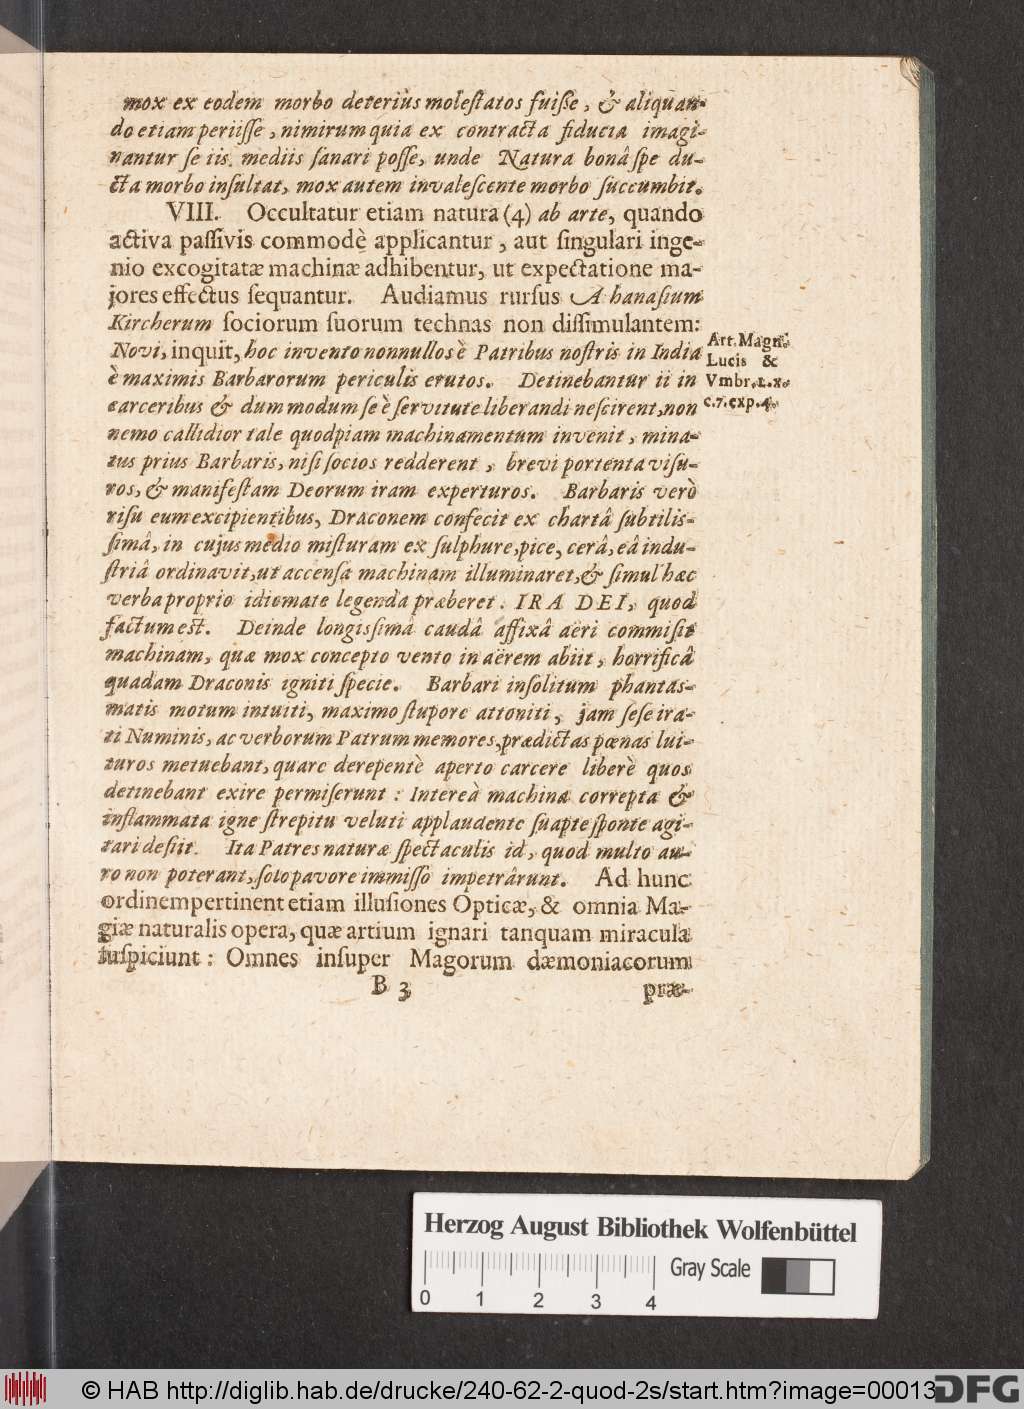 mox ex eodem morbo deteriùs molestatos fuiſſe, & aliquan-
do etiam periiſſe, nimirum quia ex contracta fiducia imagi-
nantur ſe iis. mediis ſanari poſſe, unde Natura bonâ ſpe du-
cta morbo inſultat, mox autem invaleſcente morbo ſuccumbit.
VIII. Occultatur etiam natura (4) ab arte, quando
activa paſſivis commodè applicantur, aut ſingulari inge-
nio excogitatæ machinæ adhibentur, ut expectatione ma-
jores effectus ſequantur. Audiamus rurſus A hanaſium
Kircherum ſociorum ſuorum technas non diſſimulantem:
Novi, inquit, hoc invento nonnullos è Patribus noſtris in India
è maximis Barbarorum periculis erutos. Detinebantur ii in
carceribus & dum modum ſe è ſervitute liberandi neſcirent, non
nemo callidior tale quodpiam machinamentum invenit, mina-
tus prius Barbaris, niſi ſocios redderent, brevi portenta viſu-
ros, & manifeſtam Deorum iram experturos. Barbaris verò
riſu eum excipientibus, Draconem confecit ex chartâ ſubtiliſ-
ſimâ, in cujus medio miſturam ex ſulphure, pice, cerâ, eâ indu-
ſtriâ ordinavit, ut accenſa machinam illuminaret, & ſimul hæc
verba proprio idiomate legenda præberet: IRA DEI, quod
factum eſt. Deinde longiſſimâ caudâ affixâ aëri commiſit
machinam, quæ mox concepto vento in aërem abiit, horrificâ
quadam Draconis igniti ſpecie. Barbari inſolitum phantaſ-
matis motum intuiti, maximo ſtupore attoniti, jam ſeſe ira-
ti Numinis, ac verborum Patrum memores, prædictas pœnas lui-
turos metuebant, quare derepentè aperto carcere liberè quos
detinebant exire permiſerunt: Intereà machina correpta &
inflammata igne ſtrepitu veluti applaudente ſuapte ſponte agi-
tari deſiit. Ita Patres naturæ ſpectaculis id, quod multo au-
ro non poterant, ſolo pavore immiſſo impetrârunt. Ad hunc
ordinem pertinent etiam illuſiones Opticæ, & omnia Ma-
giæ naturalis opera, quæ artium ignari tanquam miracula
ſuſpiciunt: Omnes inſuper Magorum dæmoniacorum
B 3 præ-
Art. Magn.
Lucis &
Vmbr. L. x.
c. 7. exp. 4.
Herzog August Bibliothek Wolfenbüttel
Gray Scale
0 1 2 3 4
© HAB http://diglib.hab.de/drucke/240-62-2-quod-2s/start.htm?image=00013
DFG